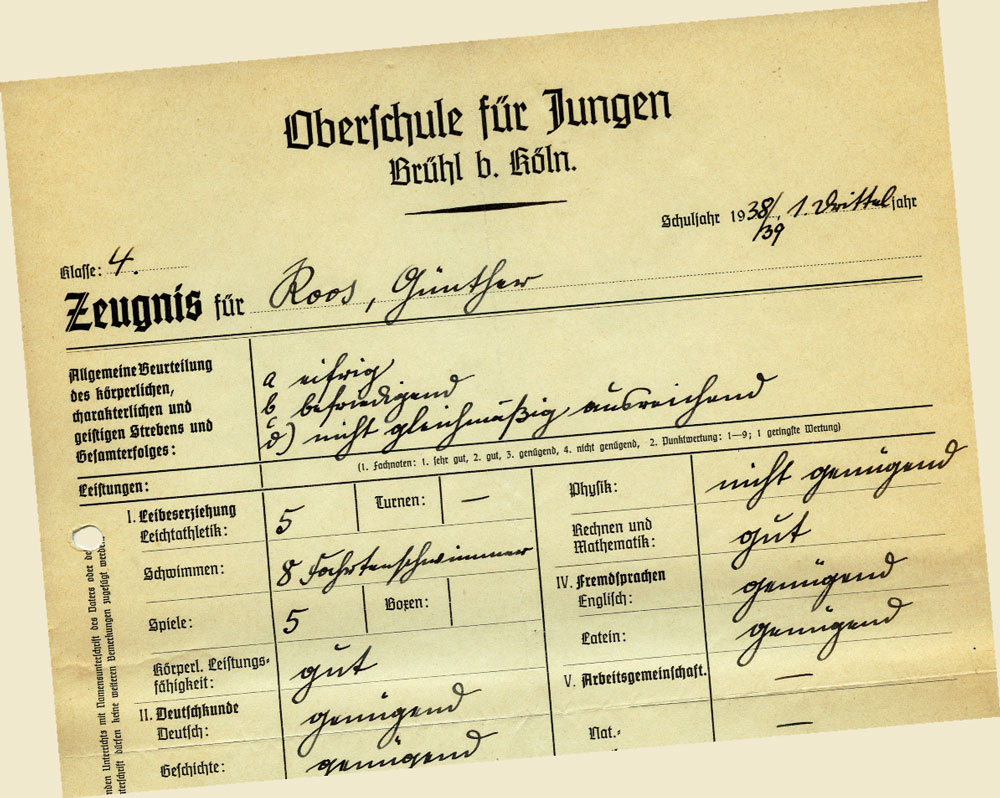 Oberschule für Jungen
Brühl b. Köln.
Schuljahr 1938/39, 1. Dritteljahr
Klasse: 4.
Zeugnis für Roos, Günther
Allgemeine Beurteilung
des körperlichen,
charakterlichen und
geistigen Strebens und
Gesamterfolges:
a eifrig
b befriedigend
c
d) nicht gleichmäßig ausreichend
(1. Fachnoten: 1. sehr gut, 2. gut, 3. genügend, 4. nicht genügend, 2. Punktwertung: 1—9; 1 geringste Wertung)
Leistungen:
I. Leibeserziehung
Leichtathletik: 5 Turnen: —
Schwimmen: 8 Fahrtenschwimmer
Spiele: 5 Boxen:
Körperl. Leistungs-
fähigkeit: gut
II. Deutschkunde
Deutsch: genügend
Geschichte: genügend
Physik: nicht genügend
Rechnen und
Mathematik: gut
IV. Fremdsprachen
Englisch: genügend
Latein: genügend
V. Arbeitsgemeinschaft. —
Nat.- —
nden Unterrichts mit Namensunterschrift des Vaters oder de
terschrift dürfen keine weiteren Bemerkungen zugefügt werden.